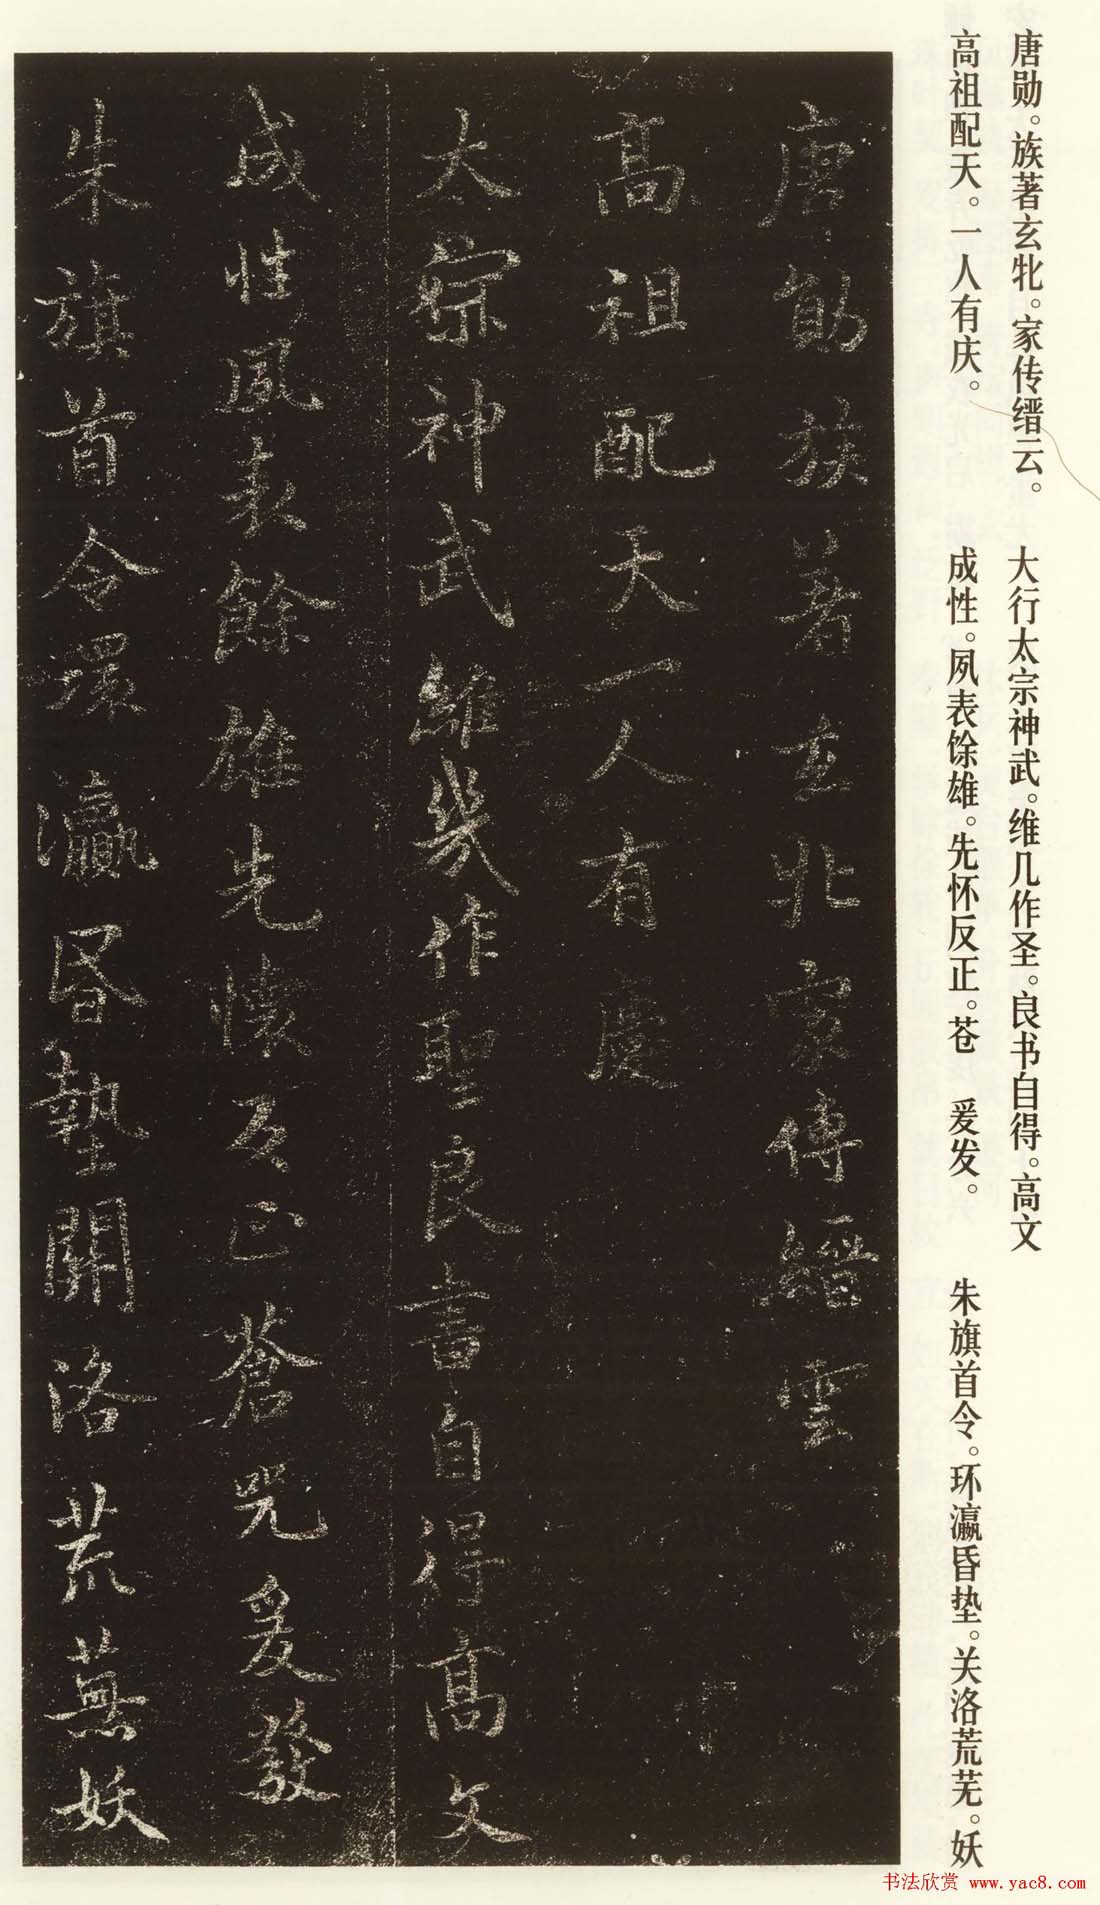 唐勋。族著玄牝。家传缙云。
高祖配天。一人有庆。
大行太宗神武。维几作圣。良书自得。高文
成性。夙表馀雄。先怀反正。苍 爰发。
朱旗首令。环瀛昏垫。关洛荒芜。妖
唐勛族著玄牝家傳縉雲
高祖配天一人有慶
太宗神武維幾作聖良書自得高文
成性夙表餘雄先懷反正蒼兕爰發
朱旗首令環瀛昏墊關洛荒蕪妖
书法欣赏 www.yac8.com